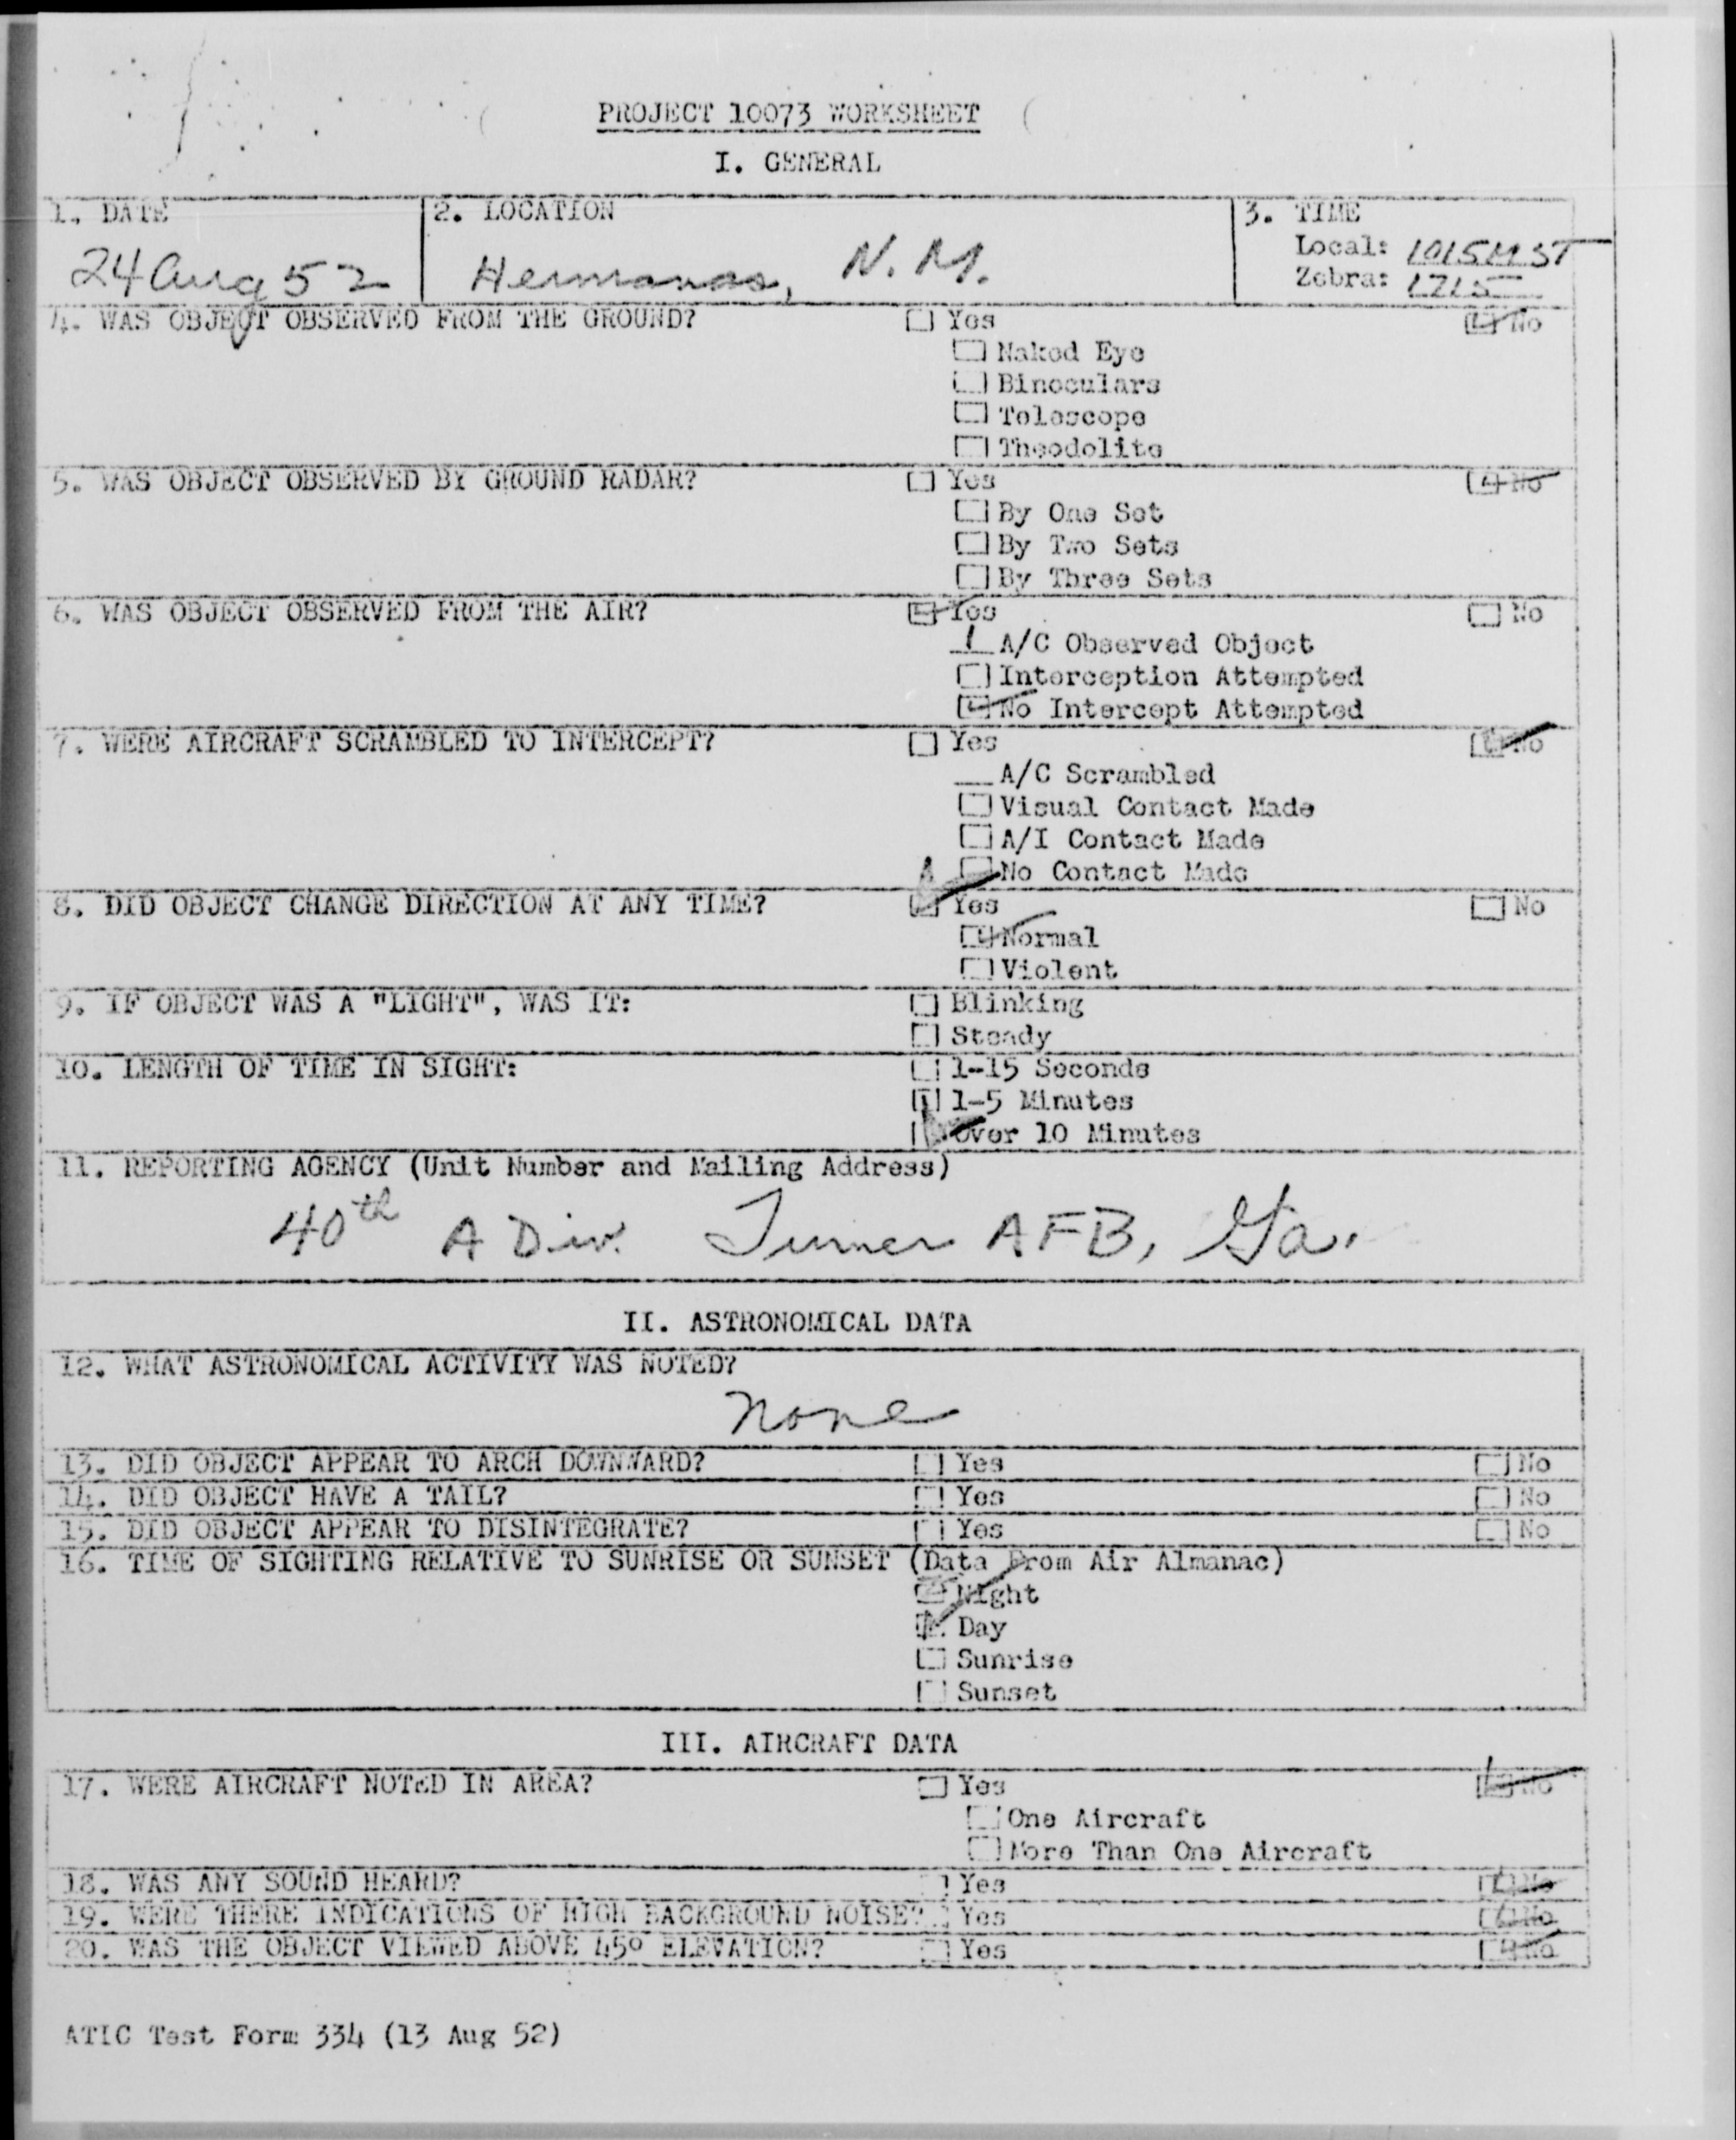 PROJECT 10073 WORKSHEET
I. GENERAL
1. DATE
24 Aug 52
2. LOCATION
Hermanas, N. M.
3. TIME
Local: 1015 MST
Zebra: 1715
4. WAS OBJECT OBSERVED FROM THE GROUND? Yes No
Naked Eye
Binoculars
Telescope
Theodolite
5. WAS OBJECT OBSERVED BY GROUND RADAR? Yes No
By One Set
By Two Sets
By Three Sets
6. WAS OBJECT OBSERVED FROM THE AIR? Yes No
1 A/C Observed Object
Interception Attempted
No Intercept Attempted
7. WERE AIRCRAFT SCRAMBLED TO INTERCEPT? Yes No
A/C Scrambled
Visual Contact Made
A/I Contact Made
No Contact Made
8. DID OBJECT CHANGE DIRECTION AT ANY TIME? Yes No
Normal
Violent
9. IF OBJECT WAS A "LIGHT", WAS IT: Blinking
Steady
10. LENGTH OF TIME IN SIGHT: 1-15 Seconds
1-5 Minutes
Over 10 Minutes
11. REPORTING AGENCY (Unit Number and Mailing Address)
40th A Div. Turner AFB, Ga.
II. ASTRONOMICAL DATA
12. WHAT ASTRONOMICAL ACTIVITY WAS NOTED?
None
13. DID OBJECT APPEAR TO ARCH DOWNWARD? Yes No
14. DID OBJECT HAVE A TAIL? Yes No
15. DID OBJECT APPEAR TO DISINTEGRATE? Yes No
16. TIME OF SIGHTING RELATIVE TO SUNRISE OR SUNSET (Data From Air Almanac)
Night
Day
Sunrise
Sunset
III. AIRCRAFT DATA
17. WERE AIRCRAFT NOTED IN AREA? Yes No
One Aircraft
More Than One Aircraft
18. WAS ANY SOUND HEARD? Yes No
19. WERE THERE INDICATIONS OF HIGH BACKGROUND NOISE? Yes No
20. WAS THE OBJECT VIEWED ABOVE 45° ELEVATION? Yes No
ATIC Test Form 334 (13 Aug 52)